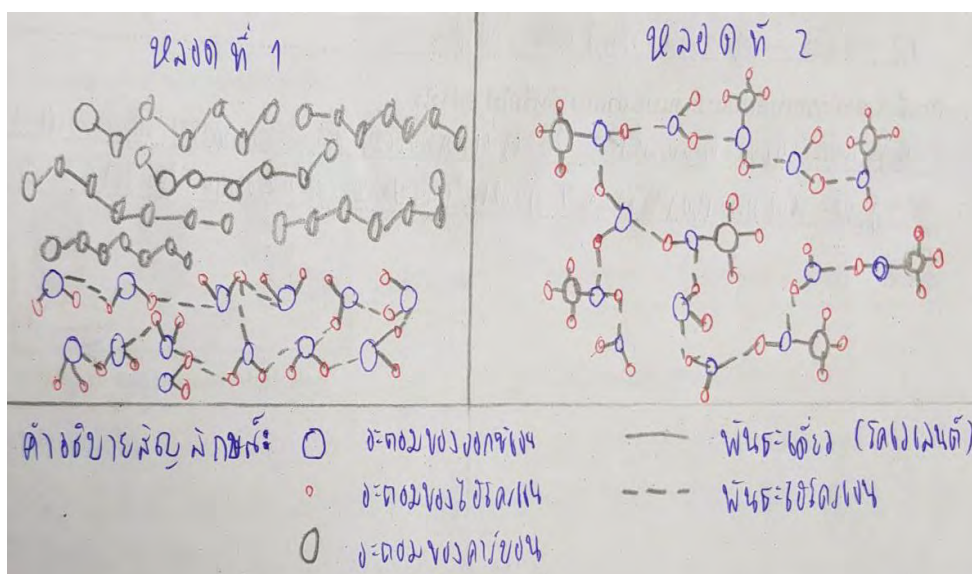 หลอดที่ 1
หลอดที่ 2
คำอธิบายสัญลักษณ์:
อะตอมของออกซิเจน
อะตอมของไฮโดรเจน
อะตอมของคาร์บอน
พันธะเดี่ยว (โคเวเลนต์)
พันธะไฮโดรเจน